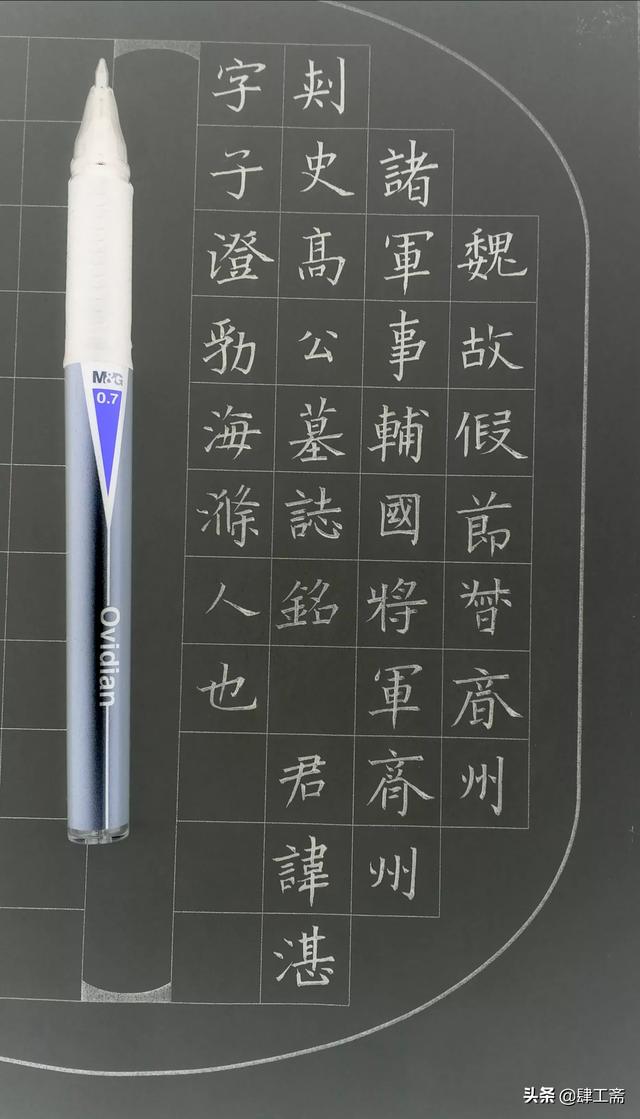 魏故假節督齊州
諸軍事輔國將軍齊州
刾史髙公墓誌銘 君諱湛
字子澄勃海滌人也
M&G
0.7
Ovidian
头条 @肆工斋